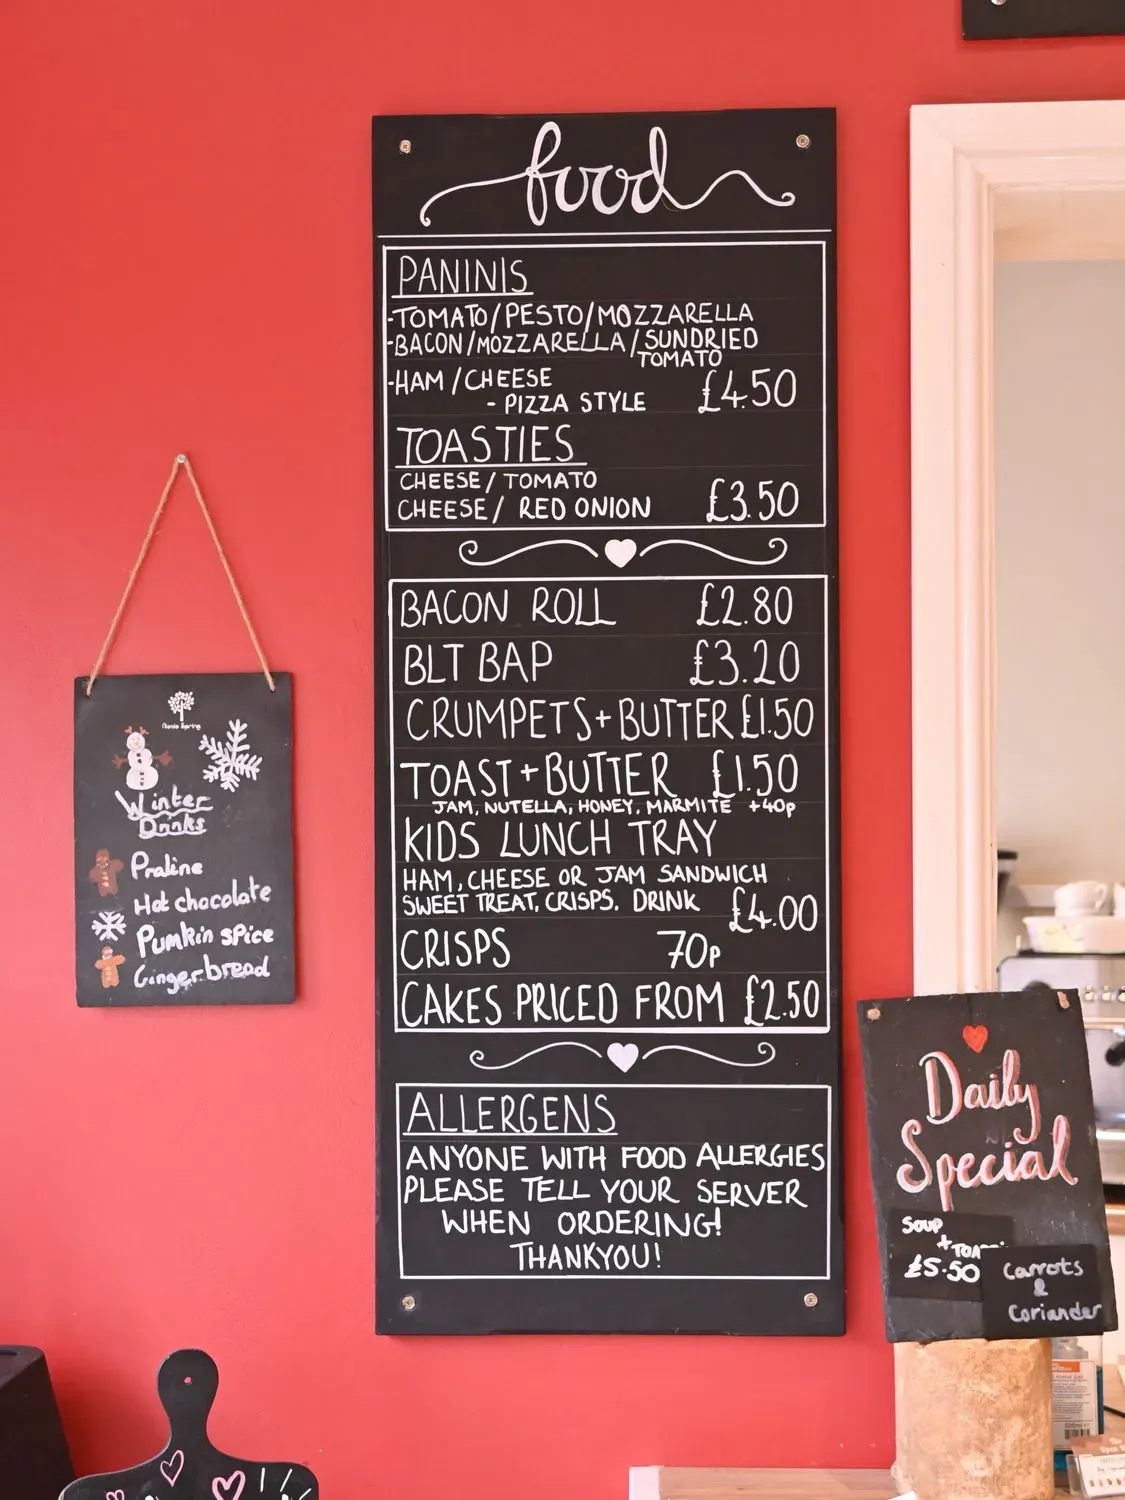 food
PANINIS
-TOMATO/PESTO/MOZZARELLA
-BACON/MOZZARELLA/SUNDRIED
TOMATO
-HAM/CHEESE
- PIZZA STYLE £4.50
TOASTIES
CHEESE/TOMATO
CHEESE/ RED ONION £3.50
BACON ROLL £2.80
BLT BAP £3.20
CRUMPETS+BUTTER £1.50
TOAST+BUTTER £1.50
JAM, NUTELLA, HONEY, MARMITE +40p
KIDS LUNCH TRAY
HAM, CHEESE OR JAM SANDWICH
SWEET TREAT, CRISPS. DRINK £4.00
CRISPS 70p
CAKES PRICED FROM £2.50
ALLERGENS
ANYONE WITH FOOD ALLERGIES
PLEASE TELL YOUR SERVER
WHEN ORDERING!
THANKYOU!
Winter
Drinks
Praline
Hot chocolate
Pumkin spice
Gingerbread
Daily
Special
Soup
+
£5.50
Carrots
&
Coriander